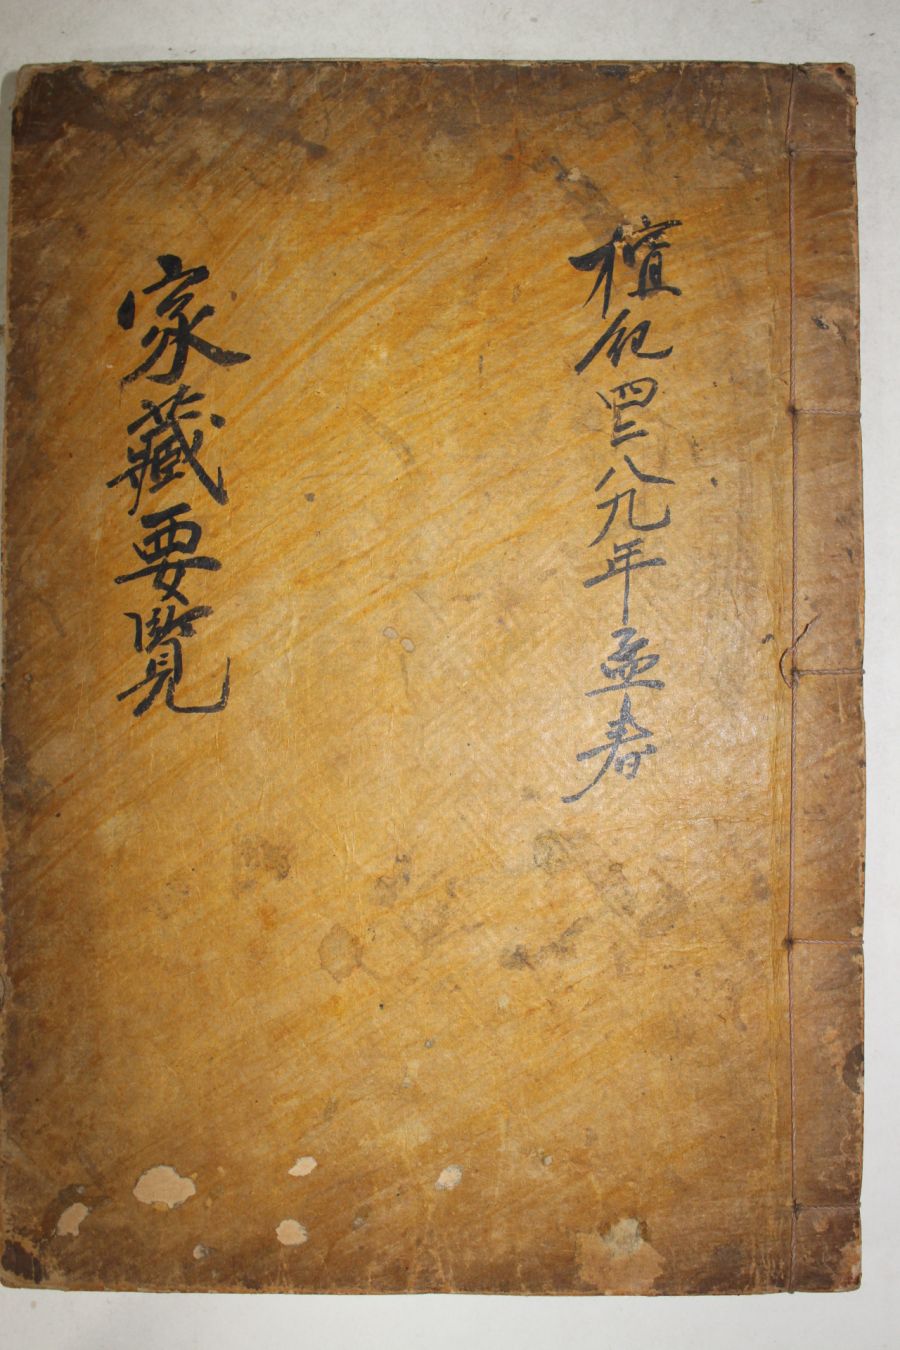 檀紀四二八九年孟春
家藏要覽